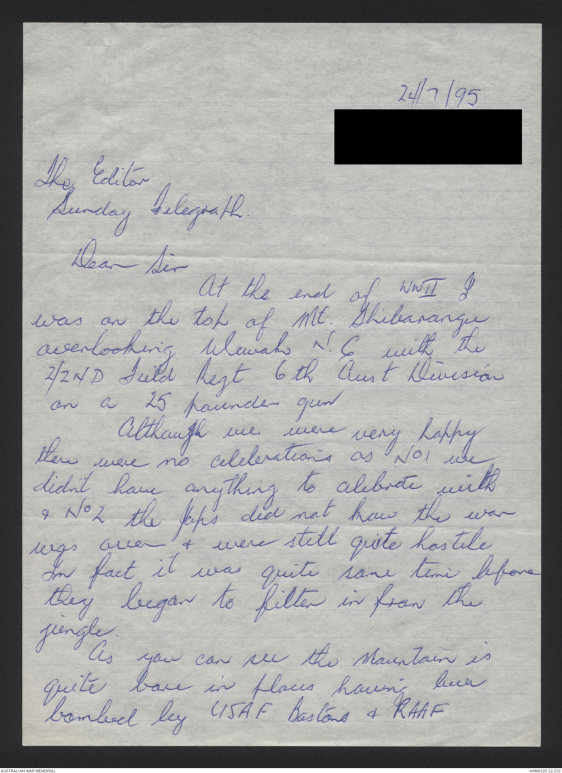 24/7/95
The Editor
Sunday Telegraph.
Dear Sir
At the end of WWII I
was on the top of Mt. Shibarangu
overlooking Wewak N.G with the
2/2ND Field Regt 6th Aust Division
on a 25 pounder gun
Although we were very happy
there were no celebrations as No1 we
didn't have anything to celebrate with
& No2 the Japs did not know the war
was over & were still quite hostile
In fact it was quite some time before
they began to filter in from the
jungle.
As you can see the Mountain is
quite bare in places having been
bombed by USAF Bostons & RAAF
AUSTRALIAN WAR MEMORIAL